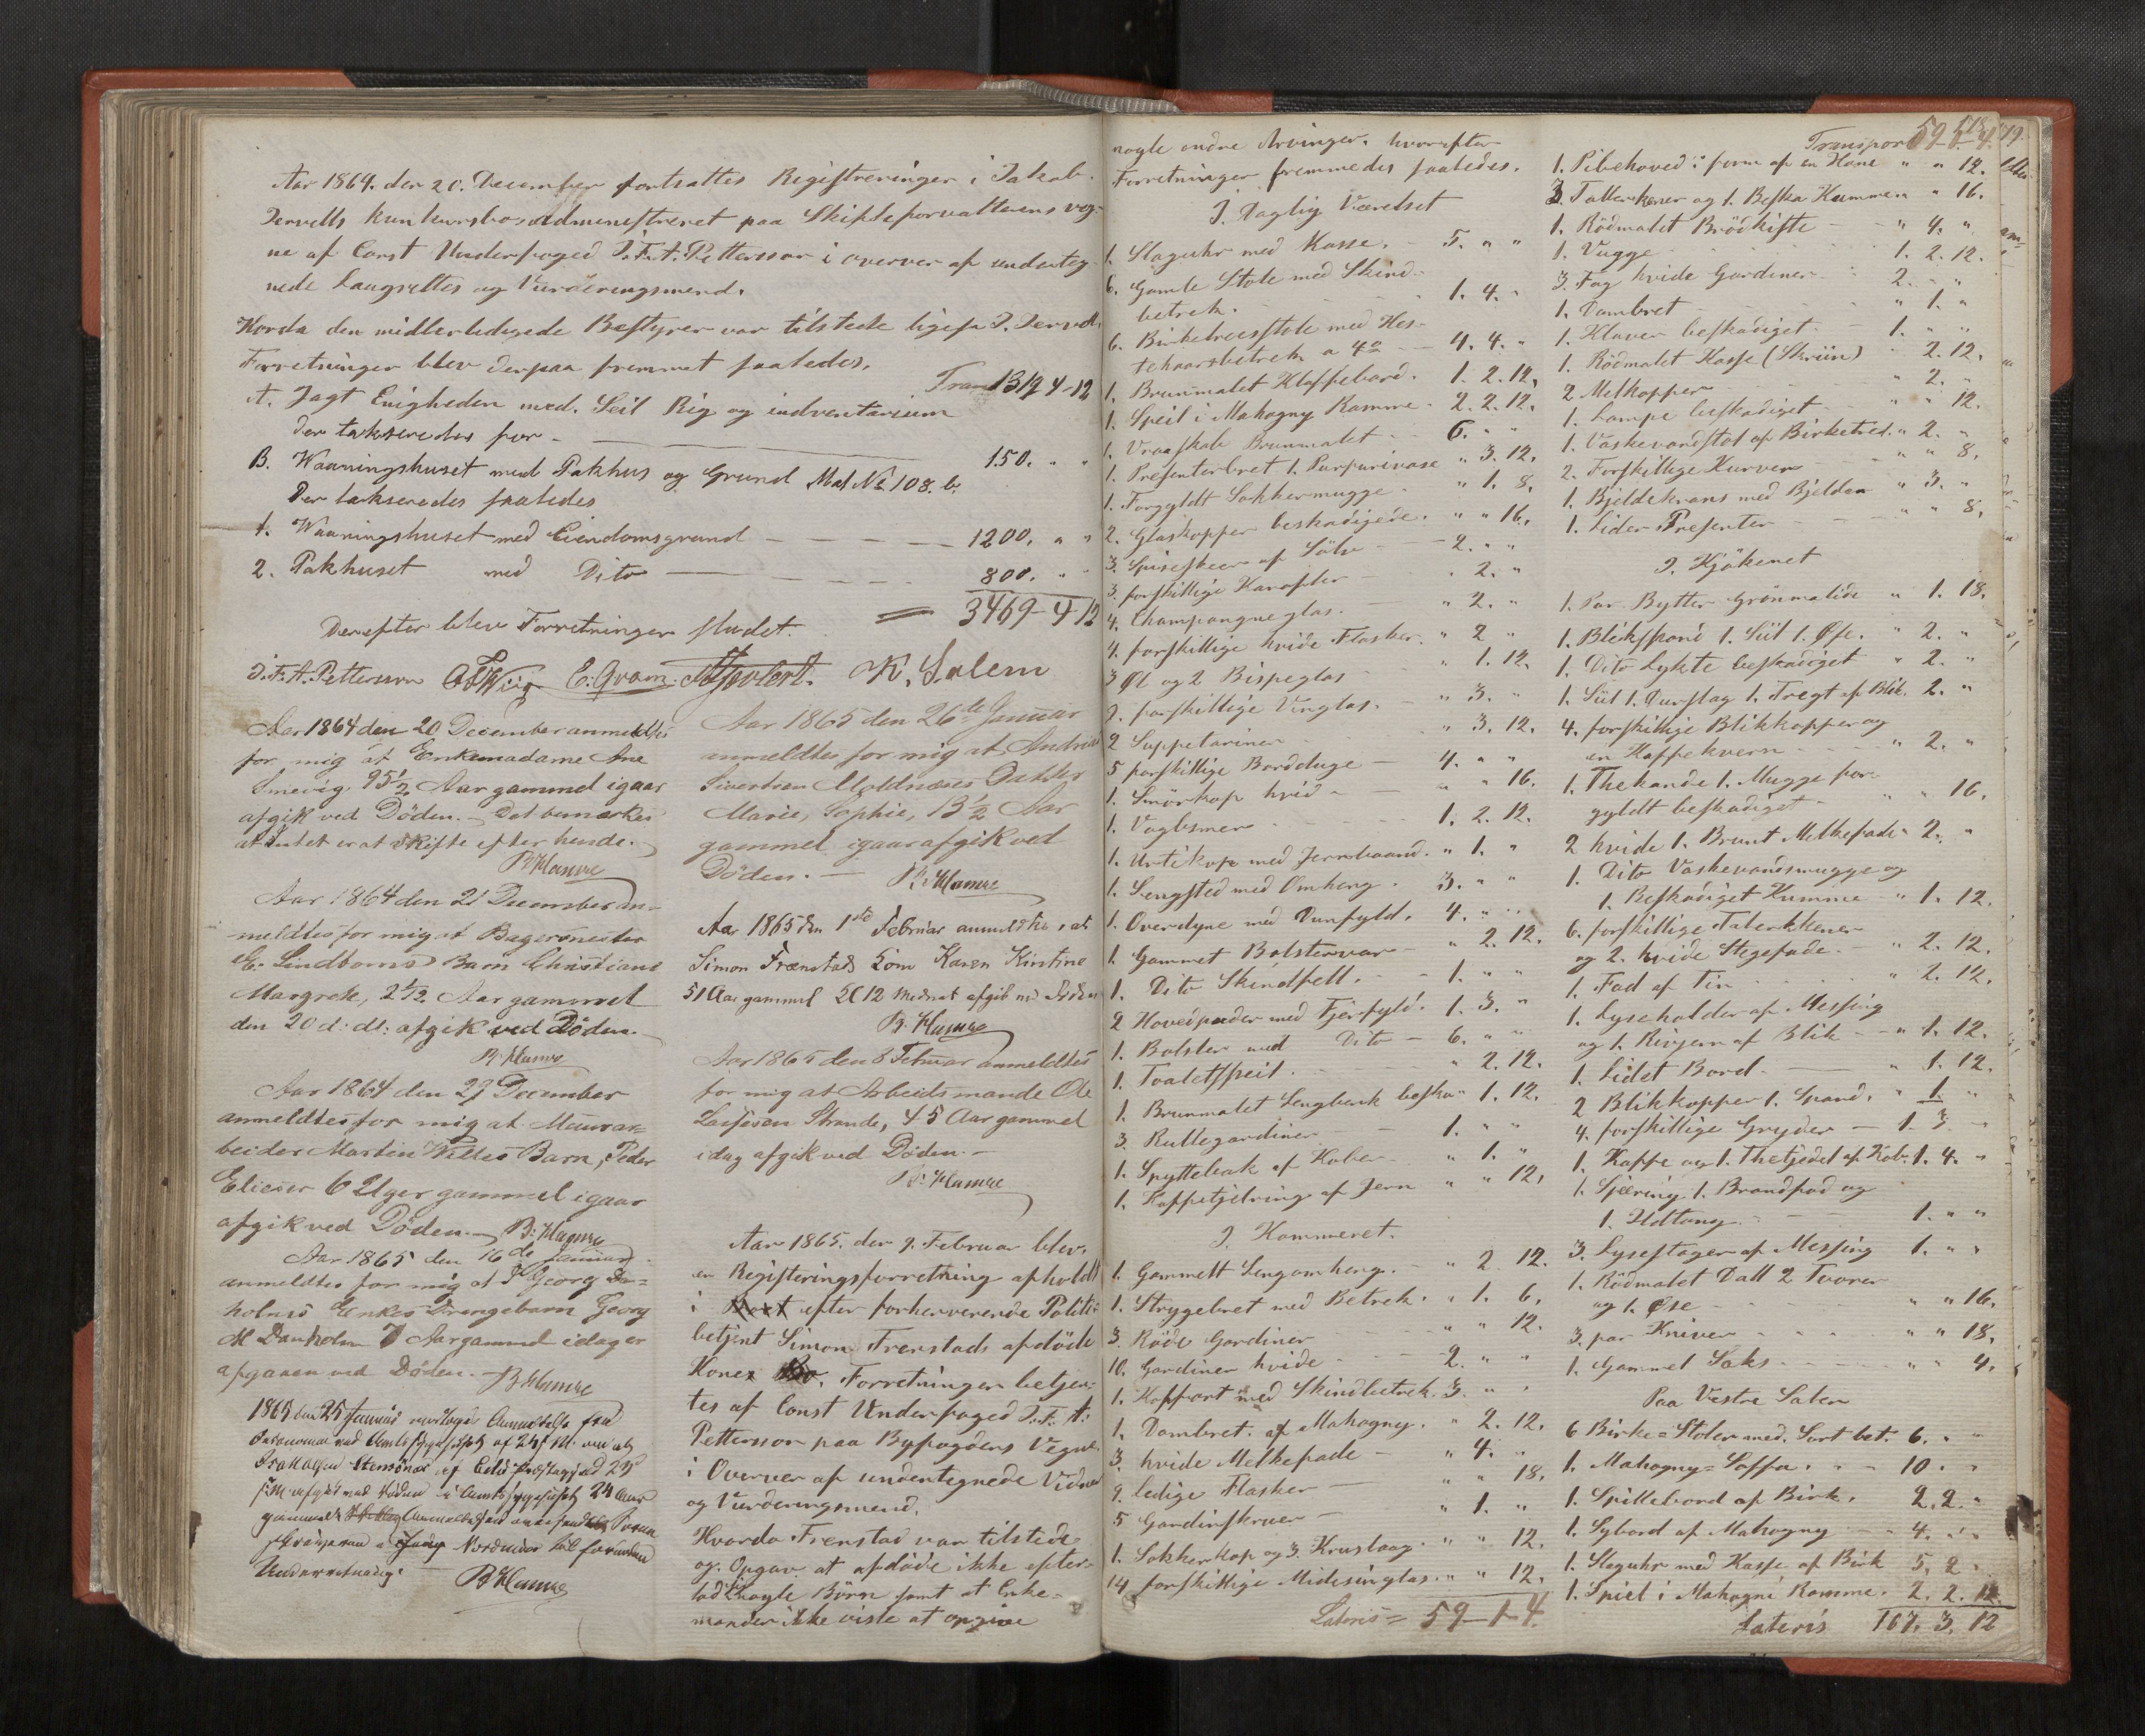 Aar 1864. den 20. December fortsattes Registreringen i Jakob
Dervells konkursbo administreret paa Skifteforvalterens veg-
ne af Const Underfoged J. F. A. Pettersson i overver af underteg
nede Laugrettes og Vurderingsmend.
Hvorda den midlertidigede Bestyrer var tilstede ligesaa J. Dervell.
Forretningen blev derpaa fremmet saaledes.
Trans 1319 4-12
A. Jagt Enigheden med. Seil Rig og indventarium
der takseredes for - 150. " "
B. Waaningshuset med Pakhus og Grund Mat No 108. b.
der takseredes saaledes
1. Waaningshuset med Eiendomsgrund - 1200. " "
2. Pakhuset med Dito - 800. " "
= 3469-4-12
Derefter blev Forretningen sluttet.
J. F. A. Pettersson E. Qvam. K. Salem
Aar 1864 den 20 December anmeldtes
for mig at Enkemadame Ane
Smevig 95 1/2 Aar gammel igaar
afgik ved Döden. - Det bemærkes
at Intet er at skifte efter hende.
B. Hamre
Aar 1864 den 21 December an-
meldtes for mig at Bagermester
E. Lindboms Barn Christiane
Margrete, 2 1/12 Aar gammel
den 20 d: dt: afgik ved Döden.
B. Hamre
Aar 1864 den 27 December
anmeldtes for mig at Murar-
beider Martin Nilles Barn, Peder
Elieser 6 Uger gammel igaar
afgik ved Döden. - B. Hamre
Aar 1865 den 16de Januar
anmeldtes for mig at Georg Dan=
holms Enkes Drengebarn Georg
M Danholm 7 Aar gammel idag er
afgaaen ved Döden. - B. Hamre
1865 den 25 Januar modtoges Anmeldelse fra
Oeconomen ved Amtssygehuset af 24 d. M. om at
Stensönes af Edö Præstegjæld 23
d: M: afgik ved Döden i Amtssygehuset 24 Aar
gammel. Anmeldelsen
Nordmör til fornöden
Underretning.
B Hamre
Aar 1865 den 26de Januar
anmeldtes for mig at Andreas
Sivertsen Moldnæses Datter
Marie, Sophie, 13 1/2 Aar
gammel igaar afgik ved
Döden. - B. Hamre
Aar 1865 den 1ste Februar anmeldtes, at
Simon Frænstads Kone Karen Kirstine
51 Aar gammel Kl 12 Midnat afgik ved Döden
B. Hamre
Aar 1865 den 8 Februar anmeldtes
for mig at Arbeidsmande Ole
Larsesen Strande, 45 Aar gammel
idag afgik ved Döden. -
B. Hamre
Aar 1865. den 9. Februar blev.
en Registeringsforretning afholdt
i Boet efter forhenverende Politi-
betjent Simon Frenstads afdöde
Kone. Forretningen betjen-
tes af Const Underfoged J. F. A:
Pettersson paa Byfogdens Vegne.
i Overver af undertegnede Vidner
og Vurderingsmend.
Hvorda Frenstad var tilstede
og. Opgav at afdöde ikke efter-
lod sig nogle Börn samt at Enke-
manden ikke viste at opgive
nogle andre Arvinger. hvorefter
Forretningen fremmedes saaledes.
I. Daglig Værelset
1. Slaguhr med Kasse. - 5. " "
6. Gamle Stole med Skind-
betrek. 1. 4. "
6. Birketresstole med Hes-
tehaarsbetrek a 4 - 4. 4. "
1. Brunmalet Klaffebord. 1. 2. 12.
1. Speil i Mahogny Ramme. 2. 2. 12.
1. Vraaskab Brunmalet - 6. " "
1. Presenterbret 1. Purpurivase " 3. 12.
1. Forgyldt Sokkermugge. " 1. 8.
2. Glaskopper beskadigede. " " 16.
3. Spiseskeer af Sölv - 2. " "
3. forskillige Karafler - " 2. "
4. Champangneglas. " 2. "
4. forskillige hvide Flasker. " 2 "
3 Öl og 2 Bispeglas " 1. 12.
9. forskillige Vinglas. - " 3. "
2 Suppetariner " 3. 12.
5 forskillige Bordduge - 4. " "
1. Smörkop hvid - " " 16.
1. Vaglismer 1. 2. 12.
1. Urtekop med Jernbaand. " 1. "
1. Sengsted med Omheng. 3. " "
1. Overdyne med Dunfyld. 4. " "
1. Gammet Bolstervar - " 2. 12.
1. Dito Skindfell. - 1. " "
2 Hovedpuder med Fjerfyld. 1. 3. "
1. Bolster med Dito - 6. " "
1. Toaletspeil. " 2. 12.
1. Brunmalet Sengbenk beska " 1. 12.
3. Rullegardiner - 1. " "
1. Spyttebak af Kober " 1. "
1. Kaffetjelring af Jern " " 12.
I. Kammeret.
1. Gammelt Sengomheng. - " 2 12.
1. Strygebret med Betrek. " 1. 6.
3. Röde Gardiner " " 12.
10. Gardiner hvide - 2. " "
1. Koffort med Skindbetrek. 3. " "
1. Dambret. af Mahogny. " 2. 12.
3. hvide Melkefade - " 4. "
9. ledige Flasker - " " 18.
5 Gardinskruer - " 1. "
1. Sokkerkop og 3. Kruslaag. " " 12.
14 forskillige Midesinglas. " " 12.
Lateris = 59-1-4.
Transport 59-1-4.
1. Pibehoved i form af en Hane " " 12.
3. Tallerkener og 1. Beska Kumme " " 16.
1. Rödmalet Brödkiste - " 4. "
1. Vugge 1. 2. 12.
3. Fag hvide Gardiner 2. " "
1. Dambret - " 1. "
1. Klaver beskadiget. - 1. " "
1. Rödmalet Kasse (Skriin) " 2. 12.
2 Melkopper " 2. "
1. Lampe beskadiget - " " 12.
1. Vaskevandstol af Birketre. " 2. "
2. Forskillige Kurver - " " 8.
1. Bjeldekrans med Bjelder " 3. "
1. Lider Presenter - " " 8.
I. Kjökenet
1. Par Bytter Grönmalede " 1. 18.
1. Blikspand 1. Siil 1. Öse. " 2. "
1. Dito Lykte beskadiget " 2. "
1. Siil 1. Durslag 1. Tregt af Blik. 2. "
4. forskillige Blikkopper og
en Kaffekvern " 2. "
1. Thekande 1. Mugge for-
gyldt beskadiget - " " 16.
2 hvide 1. Brunt Melkefade " 2. "
1. Dito Vaskevandsmugge og
1. Beskadiget Kumme " 1. 12.
6. forskillige Talerkkener
og 2. hvide Stegefade. - " 2. 12.
1. Fad af Tin " 2. 12.
1. Lyseholder af Messing
og 1. Rivjern af Blik - " 1. 12.
1. Lidet Bord. - " 1. 12.
2 Blikkopper 1. Spand. " 1. "
4. forskillige Gryder - 1. 3. "
1. Kaffe og 1. Thetjedel af Kob. 1. 4. "
1. Sjæring 1. Brandfad og
1. Ildtang. - 1. " "
3. Lysestager af Messing 1. " "
1. Rödmalet Dall 2 Tvorer
og 1. Öse " " 16.
3. par Kniver " " 18.
1. Gammel Saks " " 4.
Paa Vestre Salen
6 Birke=Stoler med. Sort bet. 6. " "
1. Mahogny=Soffa. 10. " "
1. Spillebord af Birk. 2. 2. "
1. Sybord af Mahogny - 4. " "
1. Slaguhr med Kasse af Birk 5. 2 "
1. Spiel i Mahogni Ramme. 2. 2. 12
Lateris 167. 3. 12